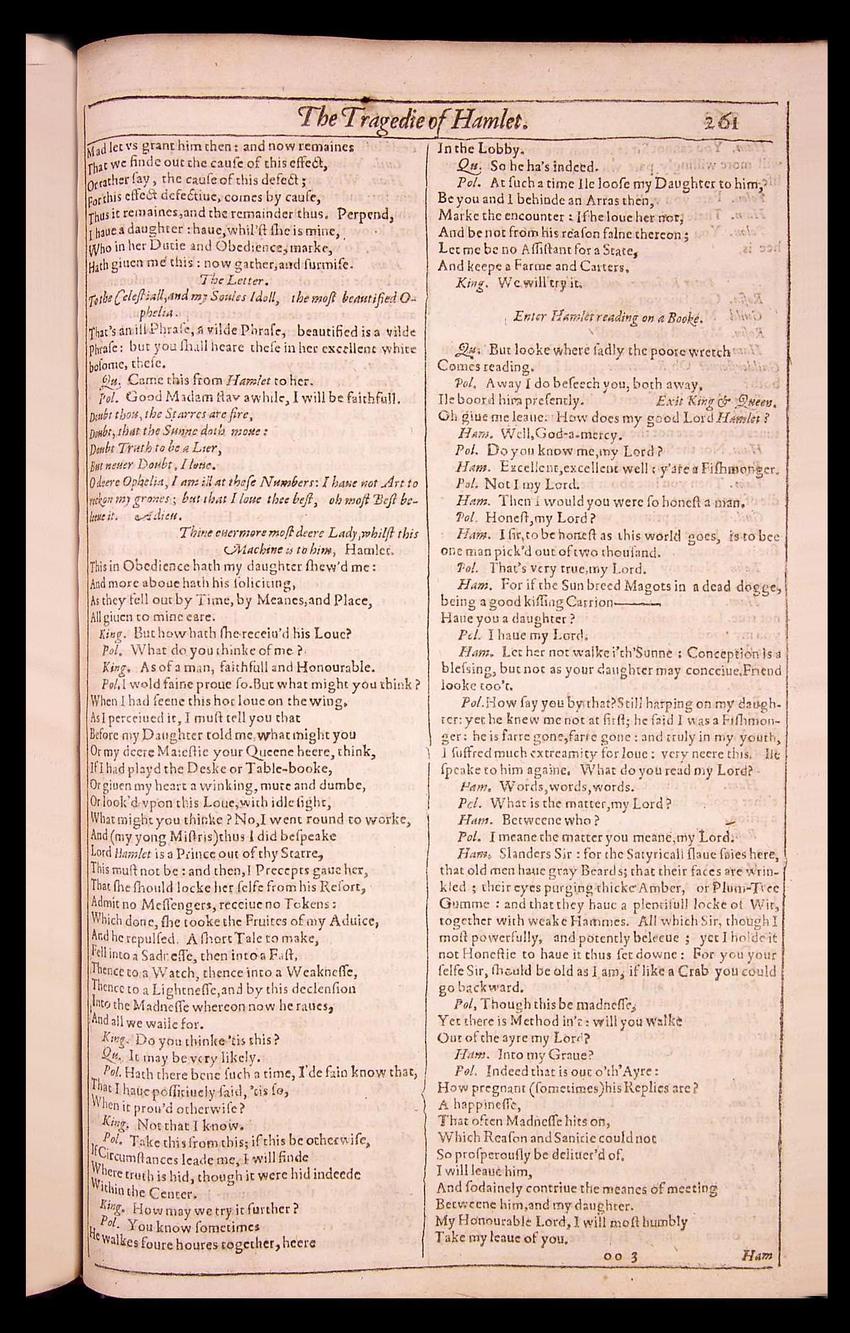 The Tragedie of Hamlet. 261
Mad let vs grant him then: and now remaines
That we finde out the cauſe of this effect,
Or rather ſay, the cauſe of this defect;
For this effect defectiue, comes by cauſe,
Thus it remaines, and the remainder thus. Perpend,
I haue a daughter: haue, whil'ſt ſhe is mine,
Who in her Dutie and Obedience, marke,
Hath giuen me this: now gather, and ſurmiſe.
The Letter.
To the Celeſtiall, and my Soules Idoll, the moſt beautified O-
phelia.
That's an ill Phraſe, a vilde Phraſe, beautified is a vilde
Phraſe: but you ſhall heare theſe in her excellent white
boſome, theſe.
Qu. Came this from Hamlet to her.
Pol. Good Madam ſtay awhile, I will be faithfull.
Doubt thou, the Starres are fire,
Doubt, that the Sunne doth moue:
Doubt Truth to be a Lier,
But neuer Doubt, I loue.
O deere Ophelia, I am ill at theſe Numbers: I haue not Art to
reckon my grones; but that I loue thee beſt, oh moſt Beſt be-
leeue it. Adieu.
Thine euermore moſt deere Lady, whilſt this
Machine is to him, Hamlet.
This in Obedience hath my daughter ſhew'd me:
And more aboue hath his ſoliciting,
As they fell out by Time, by Meanes, and Place,
All giuen to mine eare.
King. But how hath ſhe receiu'd his Loue?
Pol. What do you thinke of me?
King. As of a man, faithfull and Honourable.
Pol. I wold faine proue ſo. But what might you think?
When I had ſeene this hot loue on the wing,
As I perceiued it, I muſt tell you that
Before my Daughter told me, what might you
Or my deere Maieſtie your Queene heere, think,
If I had playd the Deske or Table-booke,
Or giuen my heart a winking, mute and dumbe,
Or look'd vpon this Loue, with idle ſight,
What might you thinke? No, I went round to worke,
And (my yong Miſtris) thus I did beſpeake
Lord Hamlet is a Prince out of thy Starre,
This muſt not be: and then, I Precepts gaue her,
That ſhe ſhould locke her ſelfe from his Reſort,
Admit no Meſſengers, receiue no Tokens:
Which done, ſhe tooke the Fruites of my Aduice,
And he repulſed. A ſhort Tale to make,
Fell into a Sadneſſe, then into a Faſt,
Thence to a Watch, thence into a Weakneſſe,
Thence to a Lightneſſe, and by this declenſion
Into the Madneſſe whereon now he raues,
And all we waile for.
King. Do you thinke 'tis this?
Qu. It may be very likely.
Pol. Hath there bene ſuch a time, I'de fain know that,
That I haue poſſitiuely ſaid, 'tis ſo,
When it prou'd otherwiſe?
King. Not that I know.
Pol. Take this from this; if this be otherwiſe,
If Circumſtances leade me, I will finde
Where truth is hid, though it were hid indeede
Within the Center.
King. How may we try it further?
Pol. You know ſometimes
He walkes foure houres together, heere
In the Lobby.
Qu. So he ha's indeed.
Pol. At ſuch a time Ile looſe my Daughter to him,
Be you and I behinde an Arras then,
Marke the encounter: If he loue her not,
And be not from his reaſon falne thereon;
Let me be no Aſſiſtant for a State,
And keepe a Farme and Carters.
King. We will try it.
Enter Hamlet reading on a Booke.
Qu. But looke where ſadly the poore wretch
Comes reading.
Pol. Away I do beſeech you, both away,
Ile boord him preſently. Exit King & Queen.
Oh giue me leaue. How does my good Lord Hamlet?
Ham. Well, God-a-mercy.
Pol. Do you know me, my Lord?
Ham. Excellent, excellent well: y'are a Fiſhmonger.
Pol. Not I my Lord.
Ham. Then I would you were ſo honeſt a man.
Pol. Honeſt, my Lord?
Ham. I ſir, to be honeſt as this world goes, is to bee
one man pick'd out of two thouſand.
Pol. That's very true, my Lord.
Ham. For if the Sun breed Magots in a dead dogge,
being a good kiſſing Carrion———
Haue you a daughter?
Pol. I haue my Lord.
Ham. Let her not walke i'th'Sunne: Conception is a
bleſsing, but not as your daughter may conceiue. Friend
looke too't.
Pol. How ſay you by that? Still harping on my daugh-
ter: yet he knew me not at firſt; he ſaid I was a Fiſhmon-
ger: he is farre gone, farre gone: and truly in my youth,
I ſuffred much extreamity for loue: very neere this. Ile
ſpeake to him againe. What do you read my Lord?
Ham. Words, words, words.
Pol. What is the matter, my Lord?
Ham. Betweene who?
Pol. I meane the matter you meane, my Lord.
Ham. Slanders Sir: for the Satyricall ſlaue ſaies here,
that old men haue gray Beards; that their faces are wrin-
kled; their eyes purging thicke Amber, or Plum-Tree
Gumme: and that they haue a plentifull locke of Wit,
together with weake Hammes. All which Sir, though I
moſt powerfully, and potently beleeue; yet I holde it
not Honeſtie to haue it thus ſet downe: For you your
ſelfe Sir, ſhould be old as I am, if like a Crab you could
go backward.
Pol. Though this be madneſſe,
Yet there is Method in't: will you walke
Out of the ayre my Lord?
Ham. Into my Graue?
Pol. Indeed that is out o'th'Ayre:
How pregnant (ſometimes) his Replies are?
A happineſſe,
That often Madneſſe hits on,
Which Reaſon and Sanitie could not
So proſperouſly be deliuer'd of.
I will leaue him,
And ſodainely contriue the meanes of meeting
Betweene him, and my daughter.
My Honourable Lord, I will moſt humbly
Take my leaue of you.
oo 3 Ham